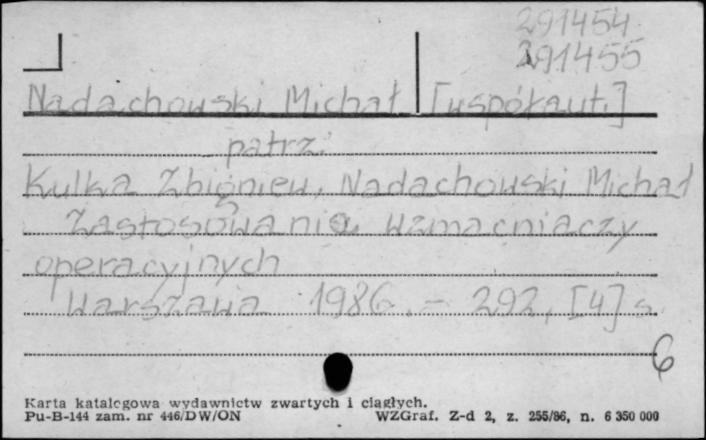 291454
291455
Nadachowski Michał [współaut.]
patrz.
Kulka Zbigniew, Nadachowski Michał
Zastosowania wzmacniaczy
operacyjnych
Warszawa 1986. – 292, [4] s.
6
Karta katalogowa wydawnictw zwartych i ciągłych.
Pu-B-144 zam. nr 446/DW/ON WZGraf. Z-d 2, z. 255/86, n. 6 350 000